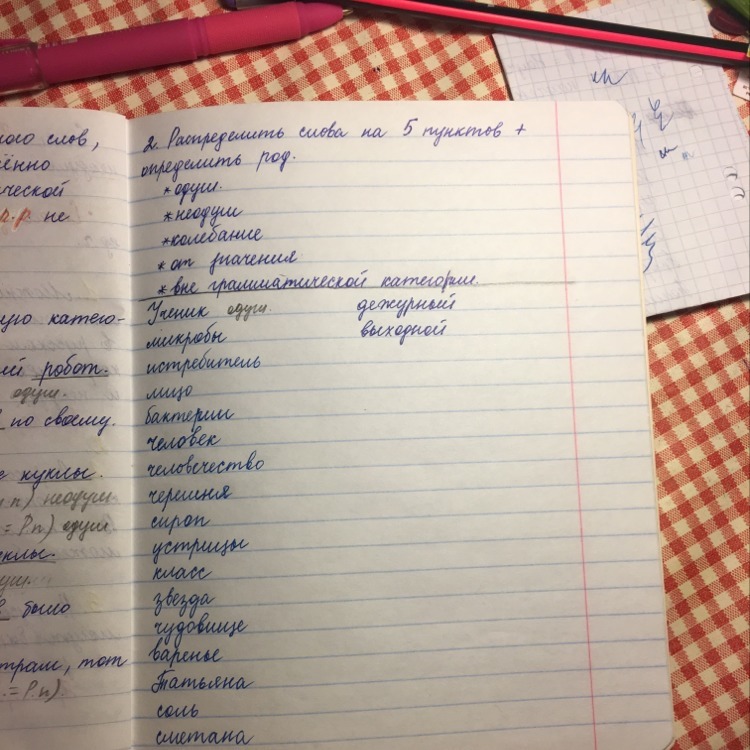 ного слов,
ённо
ической
р.р. не
ую катего-
ей робот.
одуш.
по своему.
е куклы.
п) неодуш.
= Р.п) одуш
клы.
уш.
в было
трам, тот
.= Р.п).
2. Распределить слова на 5 пунктов +
определить род.
* одуш.
* неодуш
* колебание
* от значения
* вне грамматической категории.
Ученик одуш. дежурный
микробы выходной
истребитель
лицо
бактерии
человек
человечество
черешня
сироп
устрицы
класс
звезда
чудовище
варенье
Татьяна
соль
сметана